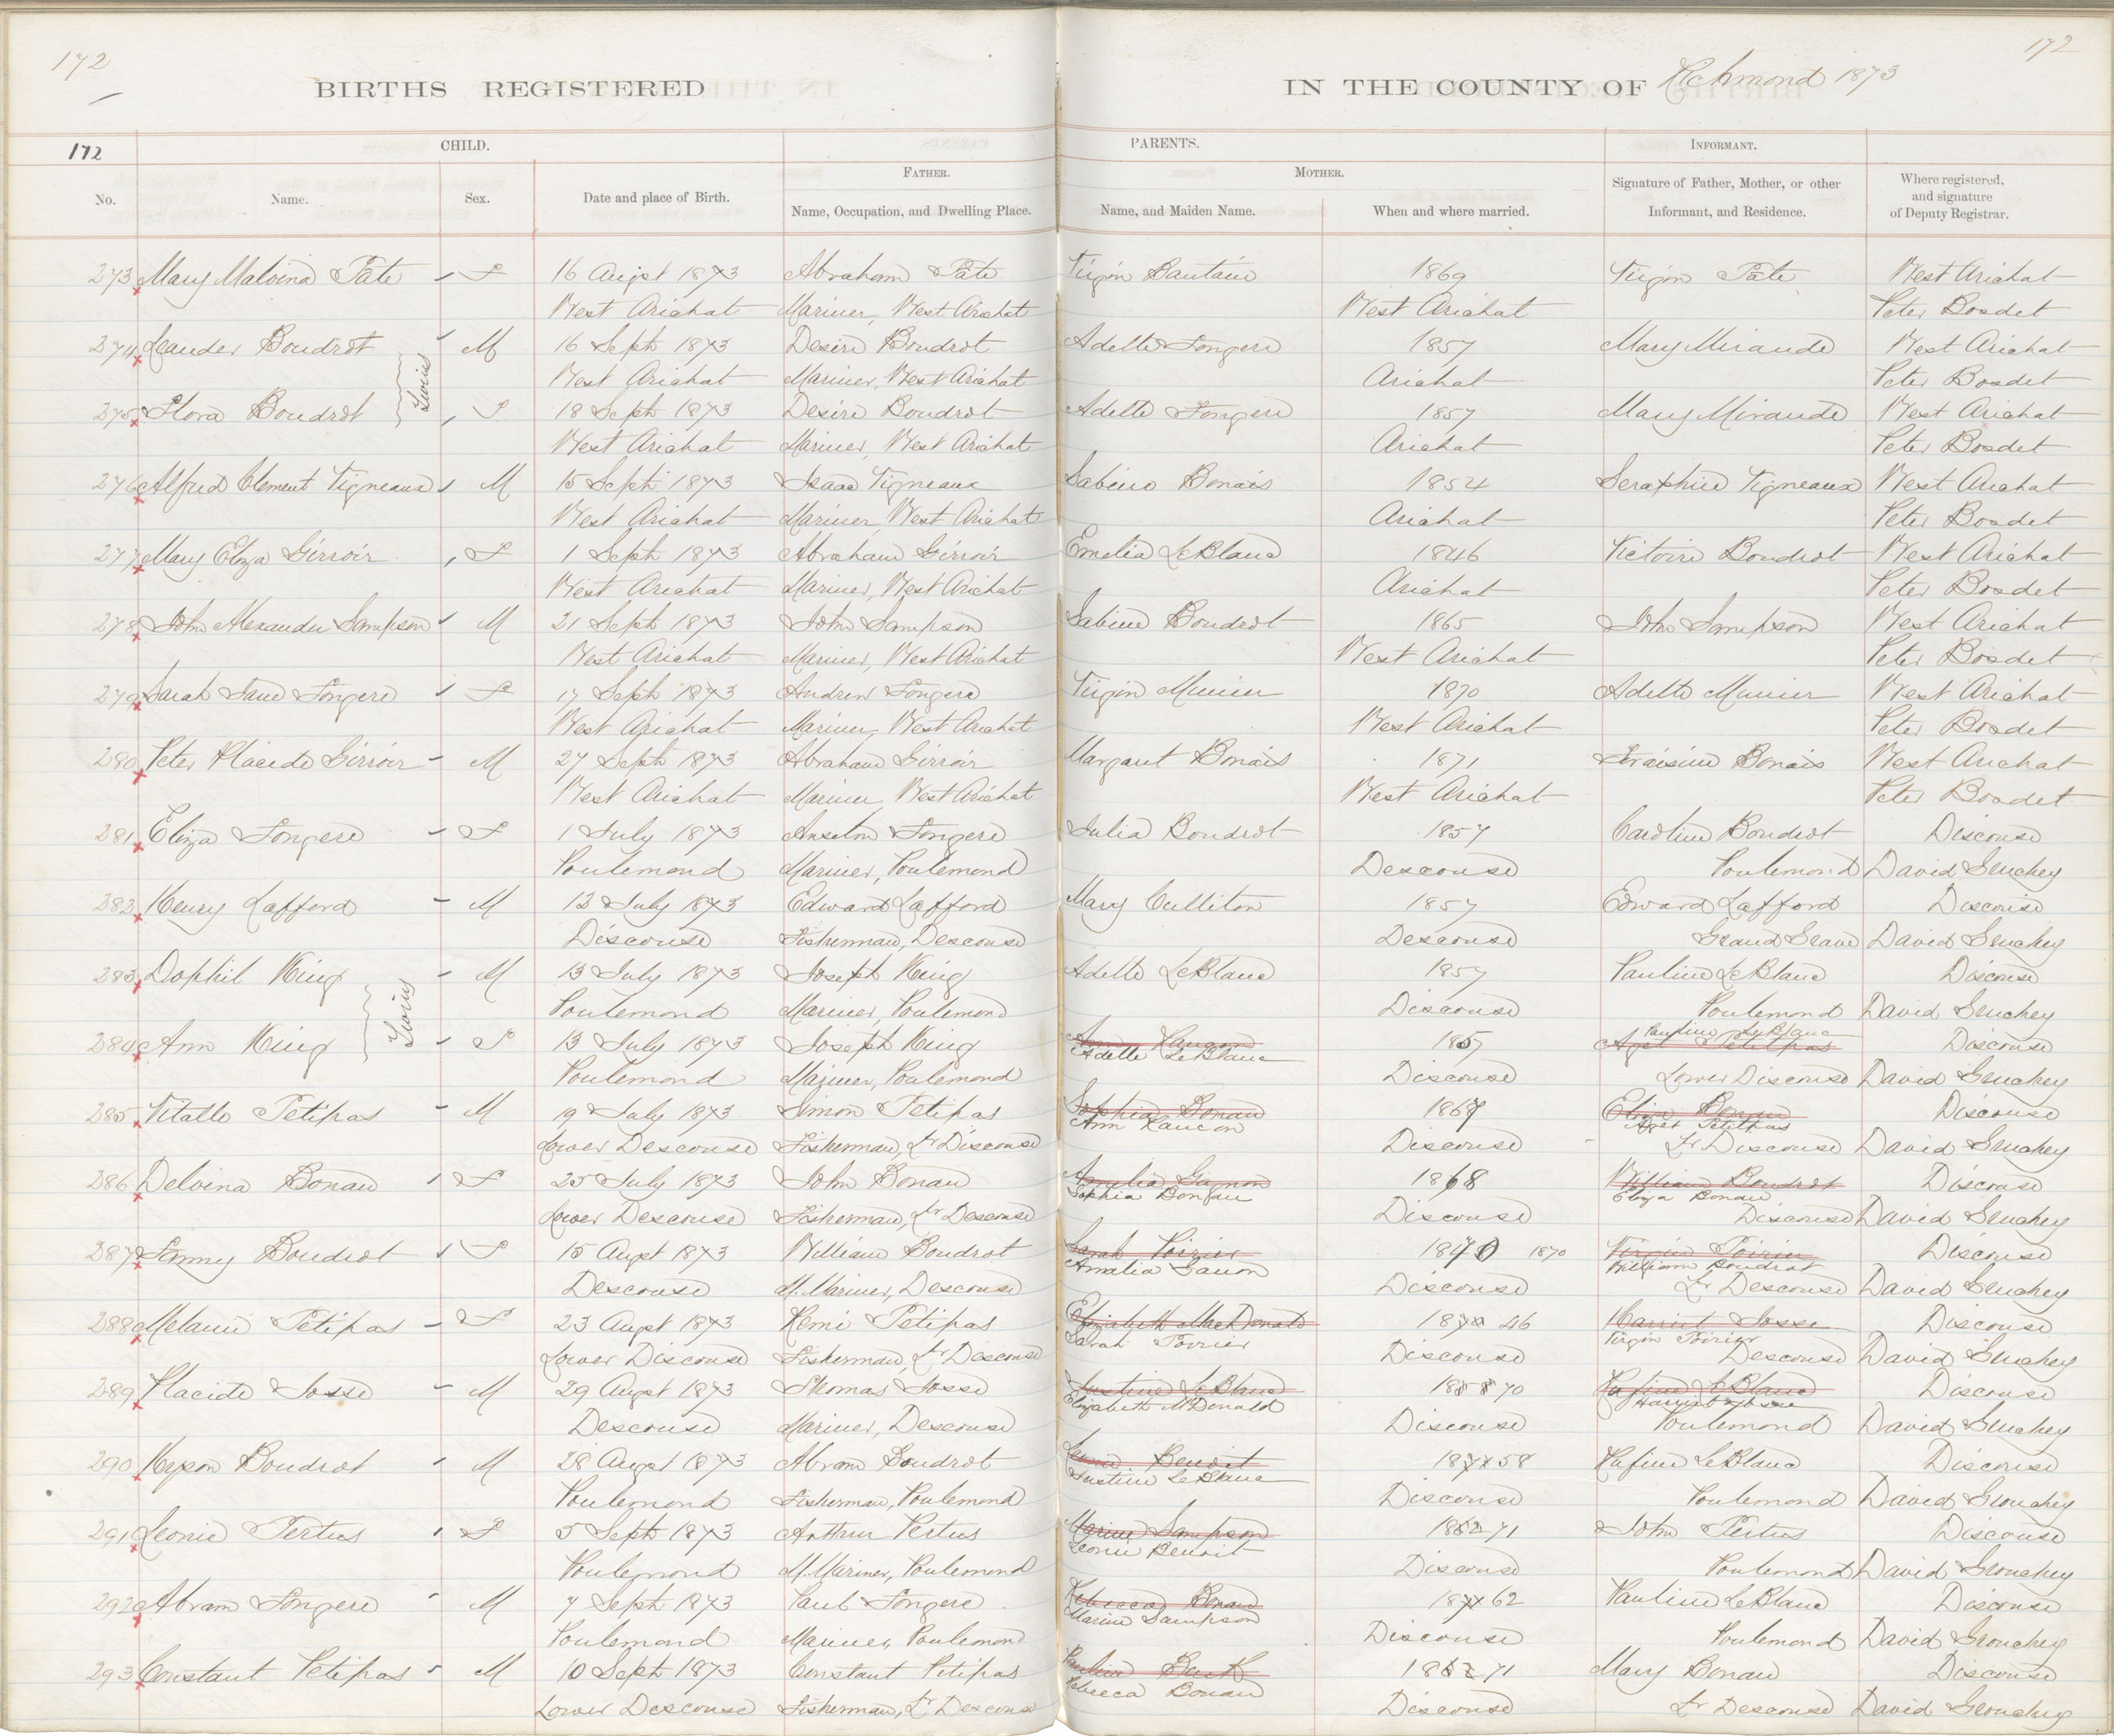 172
172
BIRTHS REGISTERED
IN THE COUNTY OF Richmond 1873
172
CHILD.
PARENTS.
INFORMANT.
FATHER.
MOTHER.
No.
Name.
Sex.
Date and place of Birth.
Name, Occupation, and Dwelling Place.
Name, and Maiden Name.
When and where married.
Signature of Father, Mother, or other
Informant, and Residence.
Where registered,
and signature
of Deputy Registrar.
273 Mary Malvina Pate - F 16 Augst 1873 Abraham Pate Virgin Bautain 1869 Virgin Pate West Arichat
West Arichat Mariner, West Arichat West Arichat Peter Bosdet
274 Leander Boudrot - M 16 Septr 1873 Desire Boudrot Adelle Fongere 1857 Mary Mirande West Arichat
Twins
West Arichat Mariner, West Arichat Arichat Peter Bosdet
275 Flora Boudrot F 18 Septr 1873 Desire Boudrot Adelle Fongere 1857 Mary Mirande West Arichat
West Arichat Mariner, West Arichat Arichat Peter Bosdet
276 Alfred Clement Vigneaux M 15 Septr 1873 Isaac Vigneaux Sabine Bonais 1854 Seraphie Vigneaux West Arichat
West Arichat Mariner, West Arichat Arichat Peter Bosdet
277 Mary Eliza Girroir F 1 Septr 1873 Abraham Girroir Emelia LeBlanc 1846 Victoire Boudrot West Arichat
West Arichat Mariner, West Arichat Arichat Peter Bosdet
278 John Alexander Sampson M 21 Septr 1873 John Sampson Sabine Boudrot 1865 John Sampson West Arichat
West Arichat Mariner, West Arichat West Arichat Peter Bosdet
279 Sarah Jane Fongere F 17 Septr 1873 Andrew Fongere Virgin Munier 1870 Adelle Munier West Arichat
West Arichat Mariner, West Arichat West Arichat Peter Bosdet
280 Peter Placide Girroir - M 27 Septr 1873 Abraham Girroir Margaret Bonais 1871 Fraisine Bonais West Arichat
West Arichat Mariner, West Arichat West Arichat Peter Bosdet
281 Eliza Fongere - F 1 July 1873 Anselm Fongere Julia Boudrot 1857 Caroline Boudrot Discouse
Poulemond Mariner, Poulemond Descouse Poulemond David Gruchey
282 Henry Lafford - M 13 July 1873 Edward Lafford Mary Culliton 1857 Edward Lafford Discouse
Discouse Fisherman, Descouse Descouse Grand Grave David Gruchey
283 Dophil King - M 13 July 1873 Joseph King Adelle LeBlanc 1857 Pauline LeBlanc Discouse
Twins
Poulemond Mariner, Poulemond Discouse Poulemond David Gruchey
Pauline LeBlanc
284 Ann King - F 13 July 1873 Joseph King Ann Raucon 1857 Aget Petitpas Discouse
Adelle LeBlanc
Poulemond Mariner, Poulemond Discouse Lower Discouse David Gruchey
285 Vitalle Petipas - M 19 July 1873 Simon Petipas Sophia Bonau 1867 Eliza Bonau Discouse
Ann Raucon Aget Petitpas
Lower Descouse Fisherman, Lr Discouse Discouse Lr Discouse David Gruchey
286 Delvina Bonau F 25 July 1873 John Bonau Amelia Gagnon 1868 William Boudrot Discouse
Sophia Bonau Eliza Bonau
Lower Descouse Fisherman, Lr Descouse Discouse Discouse David Gruchey
287 Fanny Boudrot F 15 Augst 1873 William Boudrot Sarah Poirier 1870 1870 Virgin Poirier Discouse
Amalia Ganon William Boudrot
Descouse M. Mariner, Descouse Discouse Lr Descouse David Gruchey
288 Melanie Petipas - F 23 Augst 1873 Remi Petipas Elizabeth MacDonald 1870 46 Harriet Josse Discouse
Sarah Poirier Virgin Poirier
Lower Discouse Fisherman, Lr Descouse Discouse Descouse David Gruchey
289 Placide Josse - M 29 Augst 1873 Thomas Josse Justine LeBlanc 1858 70 Rufine LeBlanc Discouse
Elizabeth McDonald Harriet Josse
Descouse Mariner, Descouse Discouse Poulemond David Gruchey
290 Boudrot M 28 Augst 1873 Abram Boudrot Leonie Benoit 1871 58 Rufine LeBlanc Discouse
Justine LeBlanc
Poulemond Fisherman, Poulemond Discouse Poulemond David Grouchey
291 Leonie Pertus F 5 Septr 1873 Arthur Pertus Marine Sampson 1862 71 John Pertus Discouse
Leonie Benoit
Poulemond M. Mariner, Poulemond Discouse Poulemond David Grouchey
292 Abram Fongere M 7 Septr 1873 Paul Fongere Rebecca Bonau 1871 62 Pauline LeBlanc Discouse
Marine Sampson
Poulemond Mariner, Poulemond Discouse Poulemond David Grouchey
293 Constant Petipas M 10 Septr 1873 Constant Petipas Pauline 1862 71 Mary Bonau Discouse
Rebecca Bonau
Lower Descouse Fisherman, Lr Descouse Discouse Lr Descouse David Grouchey